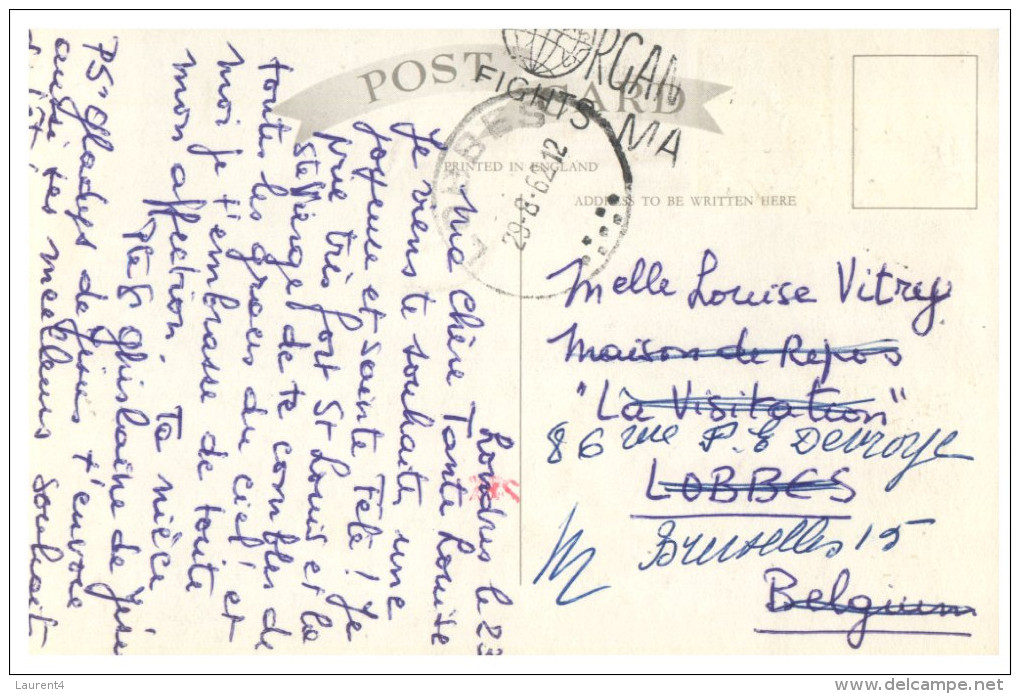 POST CARD
RGAN
FIGHTS MA
LOBBES
29-8-62 12
PRINTED IN ENGLAND
ADDRESS TO BE WRITTEN HERE
Melle Louise Vitrey
Maison de Repos
"La Visitation"
86 rue P. E Devroye
LOBBES
Bruxelles 15
Belgium
Londres le 23
Ma Chère Tante Louise
Je viens te souhaiter une
joyeuse et sainte Fête! Je
prie très fort St Louis et la
Ste Vierge de te combler de
toutes les grâces du ciel! et
moi je t'embrasse de toute
mon affection. Ta nièce
Ghislaine de Jésus
PS- Gladys de Jésus t'envoie
ses meilleurs souhait
Laurent4
delcampe.net